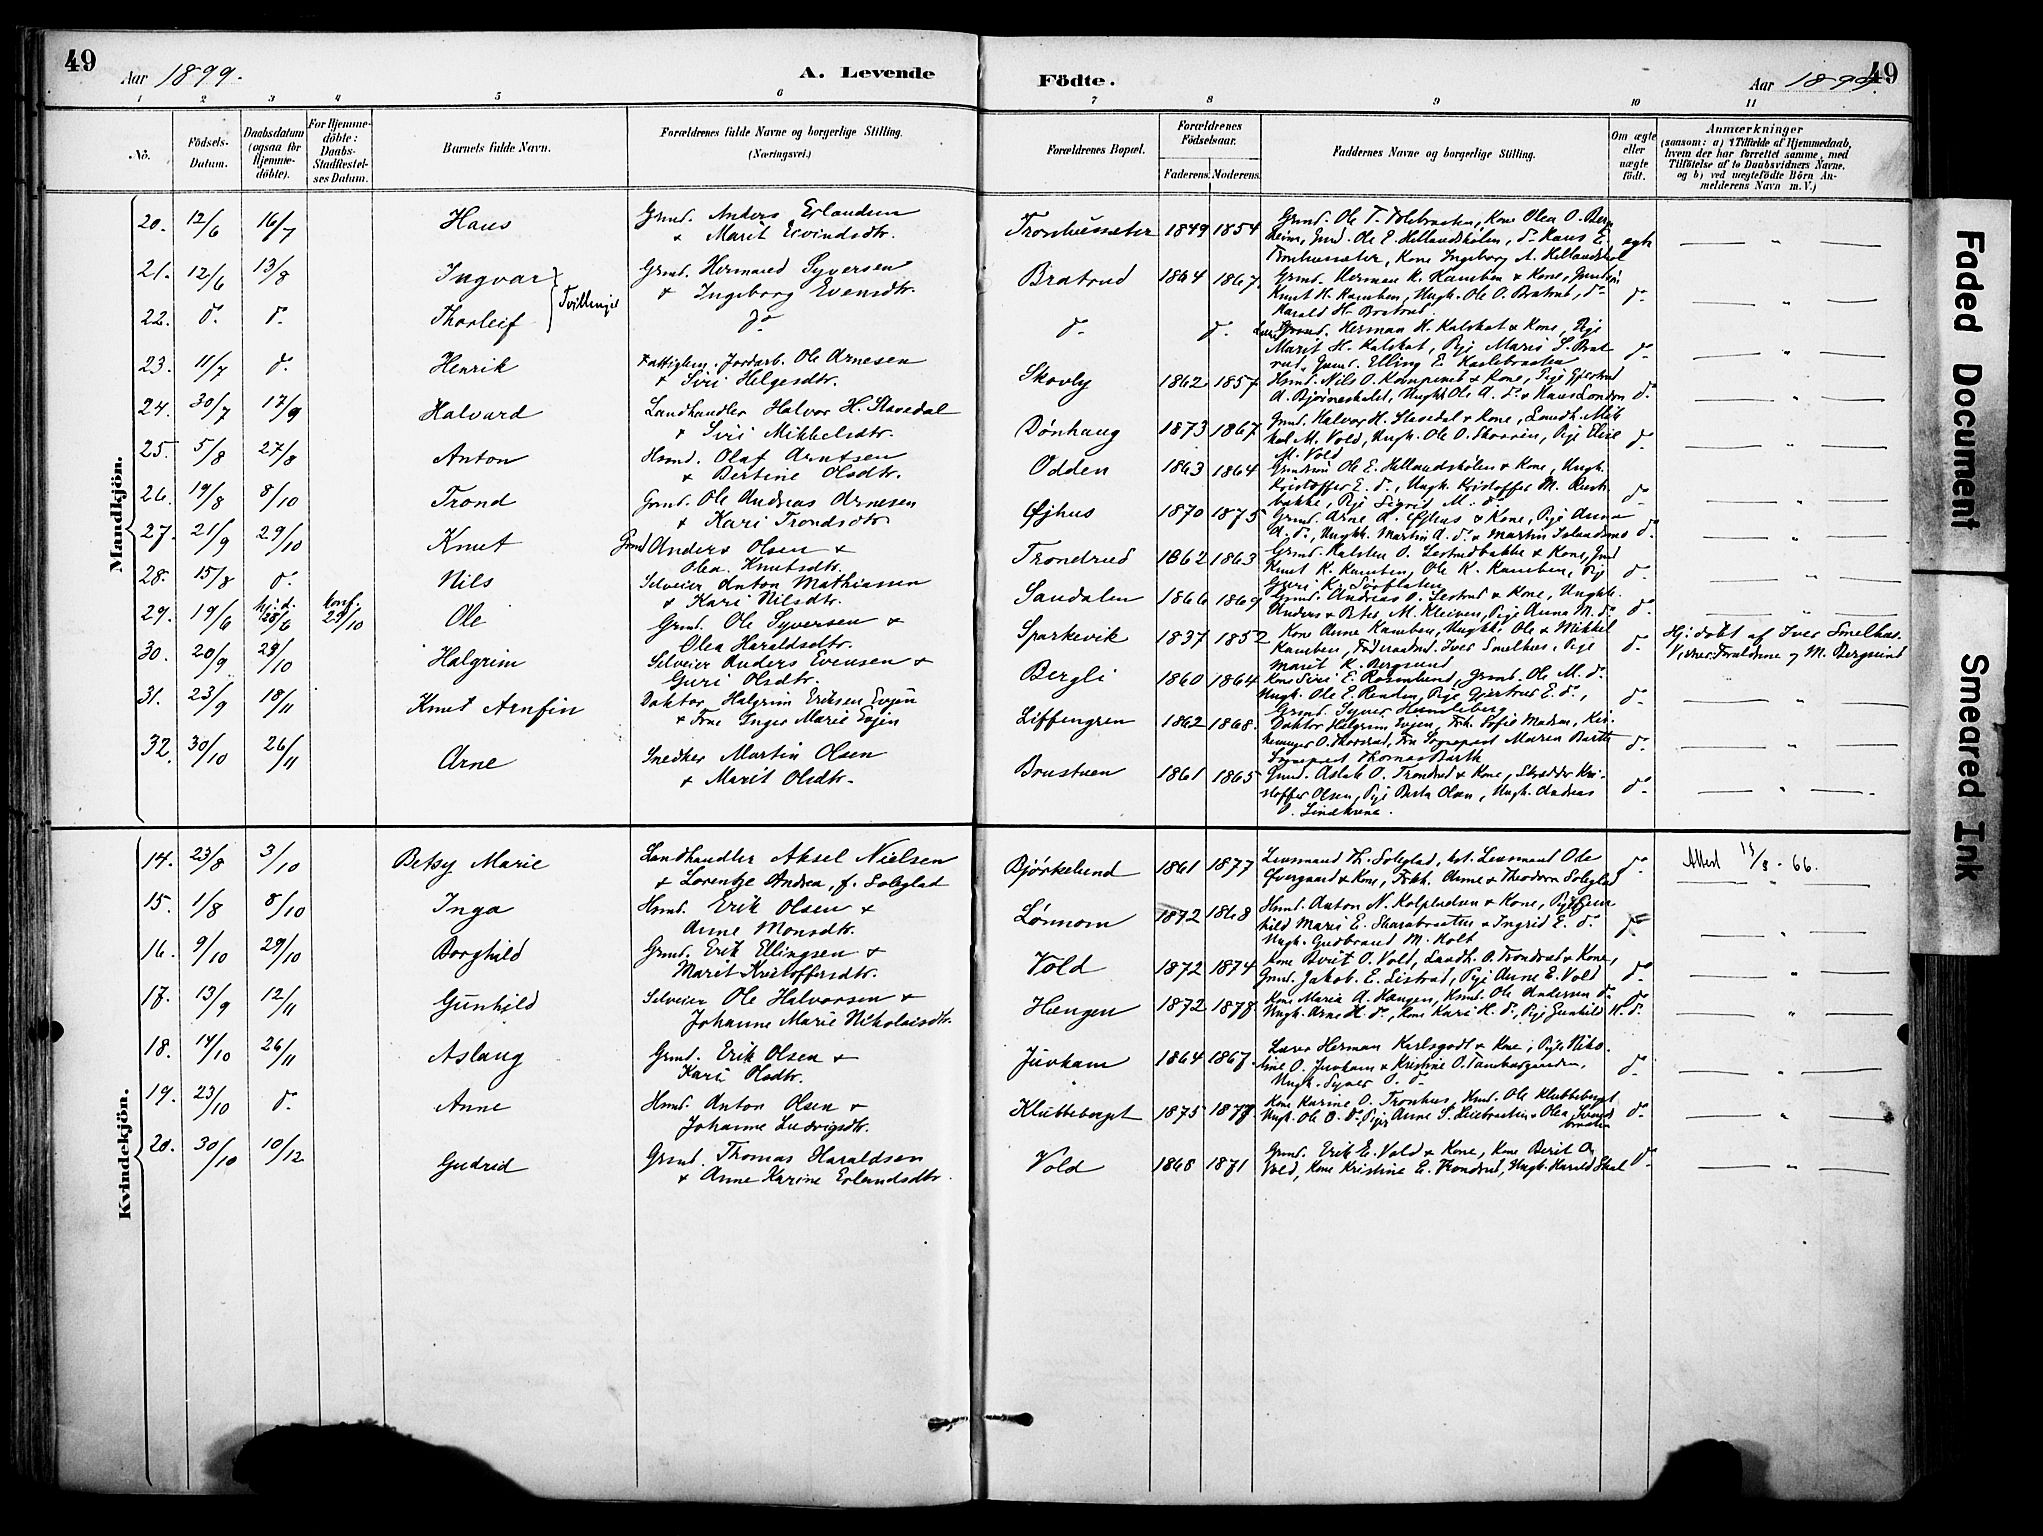 49
Aar 1899.
A. Levende
Födte.
Aar 1899.
49
1 2 3 4 5 6 7 8 9 10 11
No.
Födsels-Datum.
Daabsdatum (ogsaa for Hjemme-döbte).
For Hjemme-döbte: Daabs-Stadfæstel-ses Datum.
Barnets fulde Navn.
Forældrenes fulde Navne og borgerlige Stilling. (Næringsvei.)
Forældrenes Bopæl.
Forældrenes Födselsaar.
Faderens. Moderens.
Faddernes Navne og borgerlige Stilling.
Om ægte eller uægte födt.
Anmærkninger
(saasom: a) i Tilfælde af Hjemmedaab, hvem der har forrettet samme, med Tilföielse af to Daabsvidners Navne, og b) ved uægtefödte Börn Anmelderens Navn m. V.)
Mandkjön.
20. 12/6 16/7 Hans Grmd. Anders Erlandsen
& Marit Eivindsdtr. Tronhussæter 1849 1854 Grmd. Ole T. Tolebraaten, Kone Olea O. Berg
heim, Gmd. Ole E. Hellandshølen, d. Hans E. ægte
Tronhussæter, Kone Ingeborg A. Hellandshøl
21. 12/6 13/8 Ingvar Tvillinger Grmd. Hermand Syversen
& Ingeborg Evensdtr. Bratrud 1864 1867 Grmd. Herman K. Kamben & Kone,
Knut H. Kamben, Ungk. Ole O. Bratrud, d. d.
Harald H. Bratrud
22. d. d. Thorleif do d. d. Grmd. Herman H. Kalskat & Kone, Pige
Marit H. Kalskat, Pige Marie S. Brat
rud, Gmd. Elling E. Karlebraaten d.
23. 11/7 d. Henrik Fattiglem. Jordarb. Ole Arnesen
& Siri Helgesdtr. Skovly 1862 1857 Hsmd. Nils O. & Kone, Pige Gjertrud
A. Bjørneskalet, Ungk. Ole A. d. & Hans London d.
24. 30/7 17/9 Halvard Landhandler Halvor H. Stavedal
& Siri Mikkelsdtr. Dønhaug 1873 1867 Gmd. Halvor H. Stavedal & Kone, Landh. Mik
kel M. Vold, Ungk. Ole O. Skoaren, Pige Elise d.
M. Vold
25. 5/8 27/8 Anton Hsmd. Olaf Arntsen
& Bertine Olsdtr. Odden 1863 1864 Grmd. Ole E. Hellandshølen & Kone, Ungk.
Kristoffer E. d., Ungk. Kristoffer M. Rust
bakke, Pige Sigrid M. d. d.
26. 19/8 8/10 Trond Grmd. Ole Andreas Arnesen
& Kari Trondsdtr Øjhus 1870 1875 Grmd. Arne A. Øjhus & Kone, Pige Anna
A. d., Ungk. Martin A. d. & Martin d.
27. 21/9 29/10 Knut Grmd Anders Olsen &
Olea Knutsdtr. Trondrud 1862 1863 Grmd. Halsten O. Lestrudbakke & Kone, Gmd
Knut K. Kamben, Ole K. Kamben, Pige d.
Guri K. Sørflaten
28. 15/8 d. Nils Selveier Anton Mathiassen
& Kari Nilsdtr. Sandalen 1866 1869 Grmd. Andreas O. Lestrud & Kone, Ungk.
Anders & Peter M. Kleiven, Pige Anna M. d. d.
29. 19/6 hj. d. 28/6 konf. 29/10 Ole Grmd. Ole Syversen &
Olea Haraldsdtr. Sparkevik 1837 1852 Kone Anne Kamben, Ungkk. Ole & Mikkel
Kamben, Føderaadmd. Iver Smelhus, Pige
Marit K. Bergsund d. Hj: døbt af Iver Smelhus.
Vidner: Forældrene og M. Bergsund
30. 20/9 29/10 Halgrim Selveier Anders Evensen &
Guri Olsdtr. Bergli 1860 1864 Kone Siri E. Rosenlund, Grmd. Ole M. d.
Ungk. Ole E. Renden, Pige Gjertrud E. d., d.
Grmd. Syver Hemsleberg
31. 23/9 18/11 Knut Arnfin Doktor Halgrim Eriksen Evjen
& Frue Inger Marie Evjen Liffengren 1862 1868. Doktor Halgrim Evjen, Frk. Sofie Madsen, Kir
kesanger O. Thorsrud, Fru Sogneprest Maren Barth d.
Sogneprest Thomas Barth
32. 30/10 26/11 Arne Snedker Martin Olsen
& Marit Olsdtr. Brustuen 1861 1865 Gmd. Aslak O. Trondrud & Kone, Skrædder Kri-
stoffer Olsen, Pige Berta Olsen, Ungk. Andreas d.
O. Lindknæ.
Kvindekjön.
14. 23/8 3/10 Betsy Marie Landhandler Aksel Nielsen
& Lorentze Andrea, f. Soleglad Bjørkelund 1861 1877 Lensmand Th. Soleglad, kst. Lensmand Ole
Øvergaard & Kone, Frkk. Anne & Theodora Soleglad d. Attest 13/8-66.
15. 1/8 8/10 Inga Hsmd. Erik Olsen &
Anne Monsdtr. Lønmom 1872 1868 Hsmd. Anton N. & Kone, Pige Gun
hild Marie E. Skarabraaten & Ingrid E. d. d.
Ungk. Gudbrand M. Holt
16. 9/10 29/10 Borghild Grmd. Erik Ellingsen &
Marit Kristoffersdtr. Vold 1872 1874 Kone Berit O. Vold, Landh. O. Trondrud & Kone,
Grmd. Jakob E. Leistrud, Pige Anne E. Vold d.
17. 13/9 12/11 Gunhild Selveier Ole Halvorsen &
Johanne Marie Nikolaisdtr. Hængen 1872 1878. Kone Maria A. Hængen, Hsmd. Ole Andersen d. d.
Ungk. Arne H. d., Kone Kari H. d., Pige Gunhild H. d.
18. 14/10 26/11 Aslaug Grmd. Erik Olsen &
Kari Olsdtr. Juvkam 1864 1867. Lærer Herman Karlsgodt & Kone, Pige Niko-
line O. Juvkam & Kristine O. Tamburgaarden, d.
Ungk. Syver O. d.
19. 23/10 d. Anne Hsmd. Anton Olsen &
Johanne Ludvigsdtr. Klubbeberget 1875 1878 Kone Karine O. Tronhus, Hsmd. Ole Klubbeberget
Ungk. Ole O. d. Piger Anne S. Leiebraaten & Olea
braaten d.
20. 30/10 10/12 Gudrid Grmd. Thomas Haraldsen
& Anne Karine Erlandsdtr. Vold 1868 1871 Grmd. Erik E. Vold & Kone, Kone Berit O.
Vold, Kone Kristine E. Trondrud, Ungk. Harald Skal d.
Faded Document
Smeared Ink